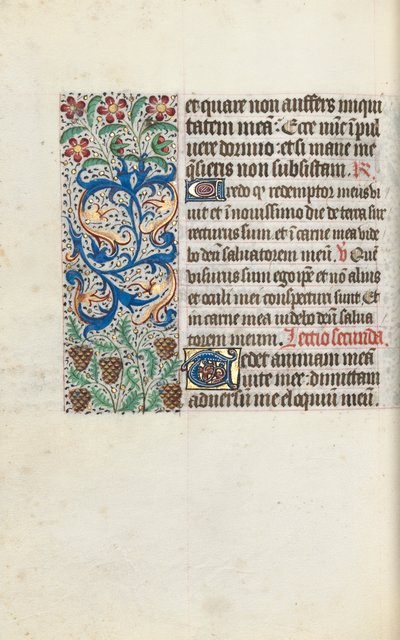 et quare non auffers iniqui
tatem meā: Ecce nūc ī pul
uere dormio: et si mane me
q̄sieris non subsistam. R̄
Credo q̱ redemptor meus vi
uit et ī nouissimo die de terra sur
recturus sum: et ī carne mea vide
bo deū saluatorem meū. v̄ Quē
visurus sum ego ip̄e et nō alius
et oculi mei conspecturi sunt Et
in carne mea videbo deū salua
torem meum. Lectio secunda.
Tedet animam meā
vite mee: dimittam
aduersū me eloquiū meū.